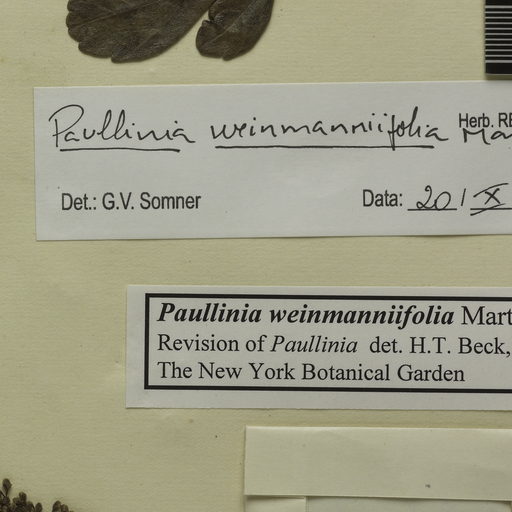 Paullinia weinmanniifolia Mar
Herb. RB
Det.: G.V. Somner Data: 20 / X
Paullinia weinmanniifolia Mart
Revision of Paullinia det. H.T. Beck,
The New York Botanical Garden